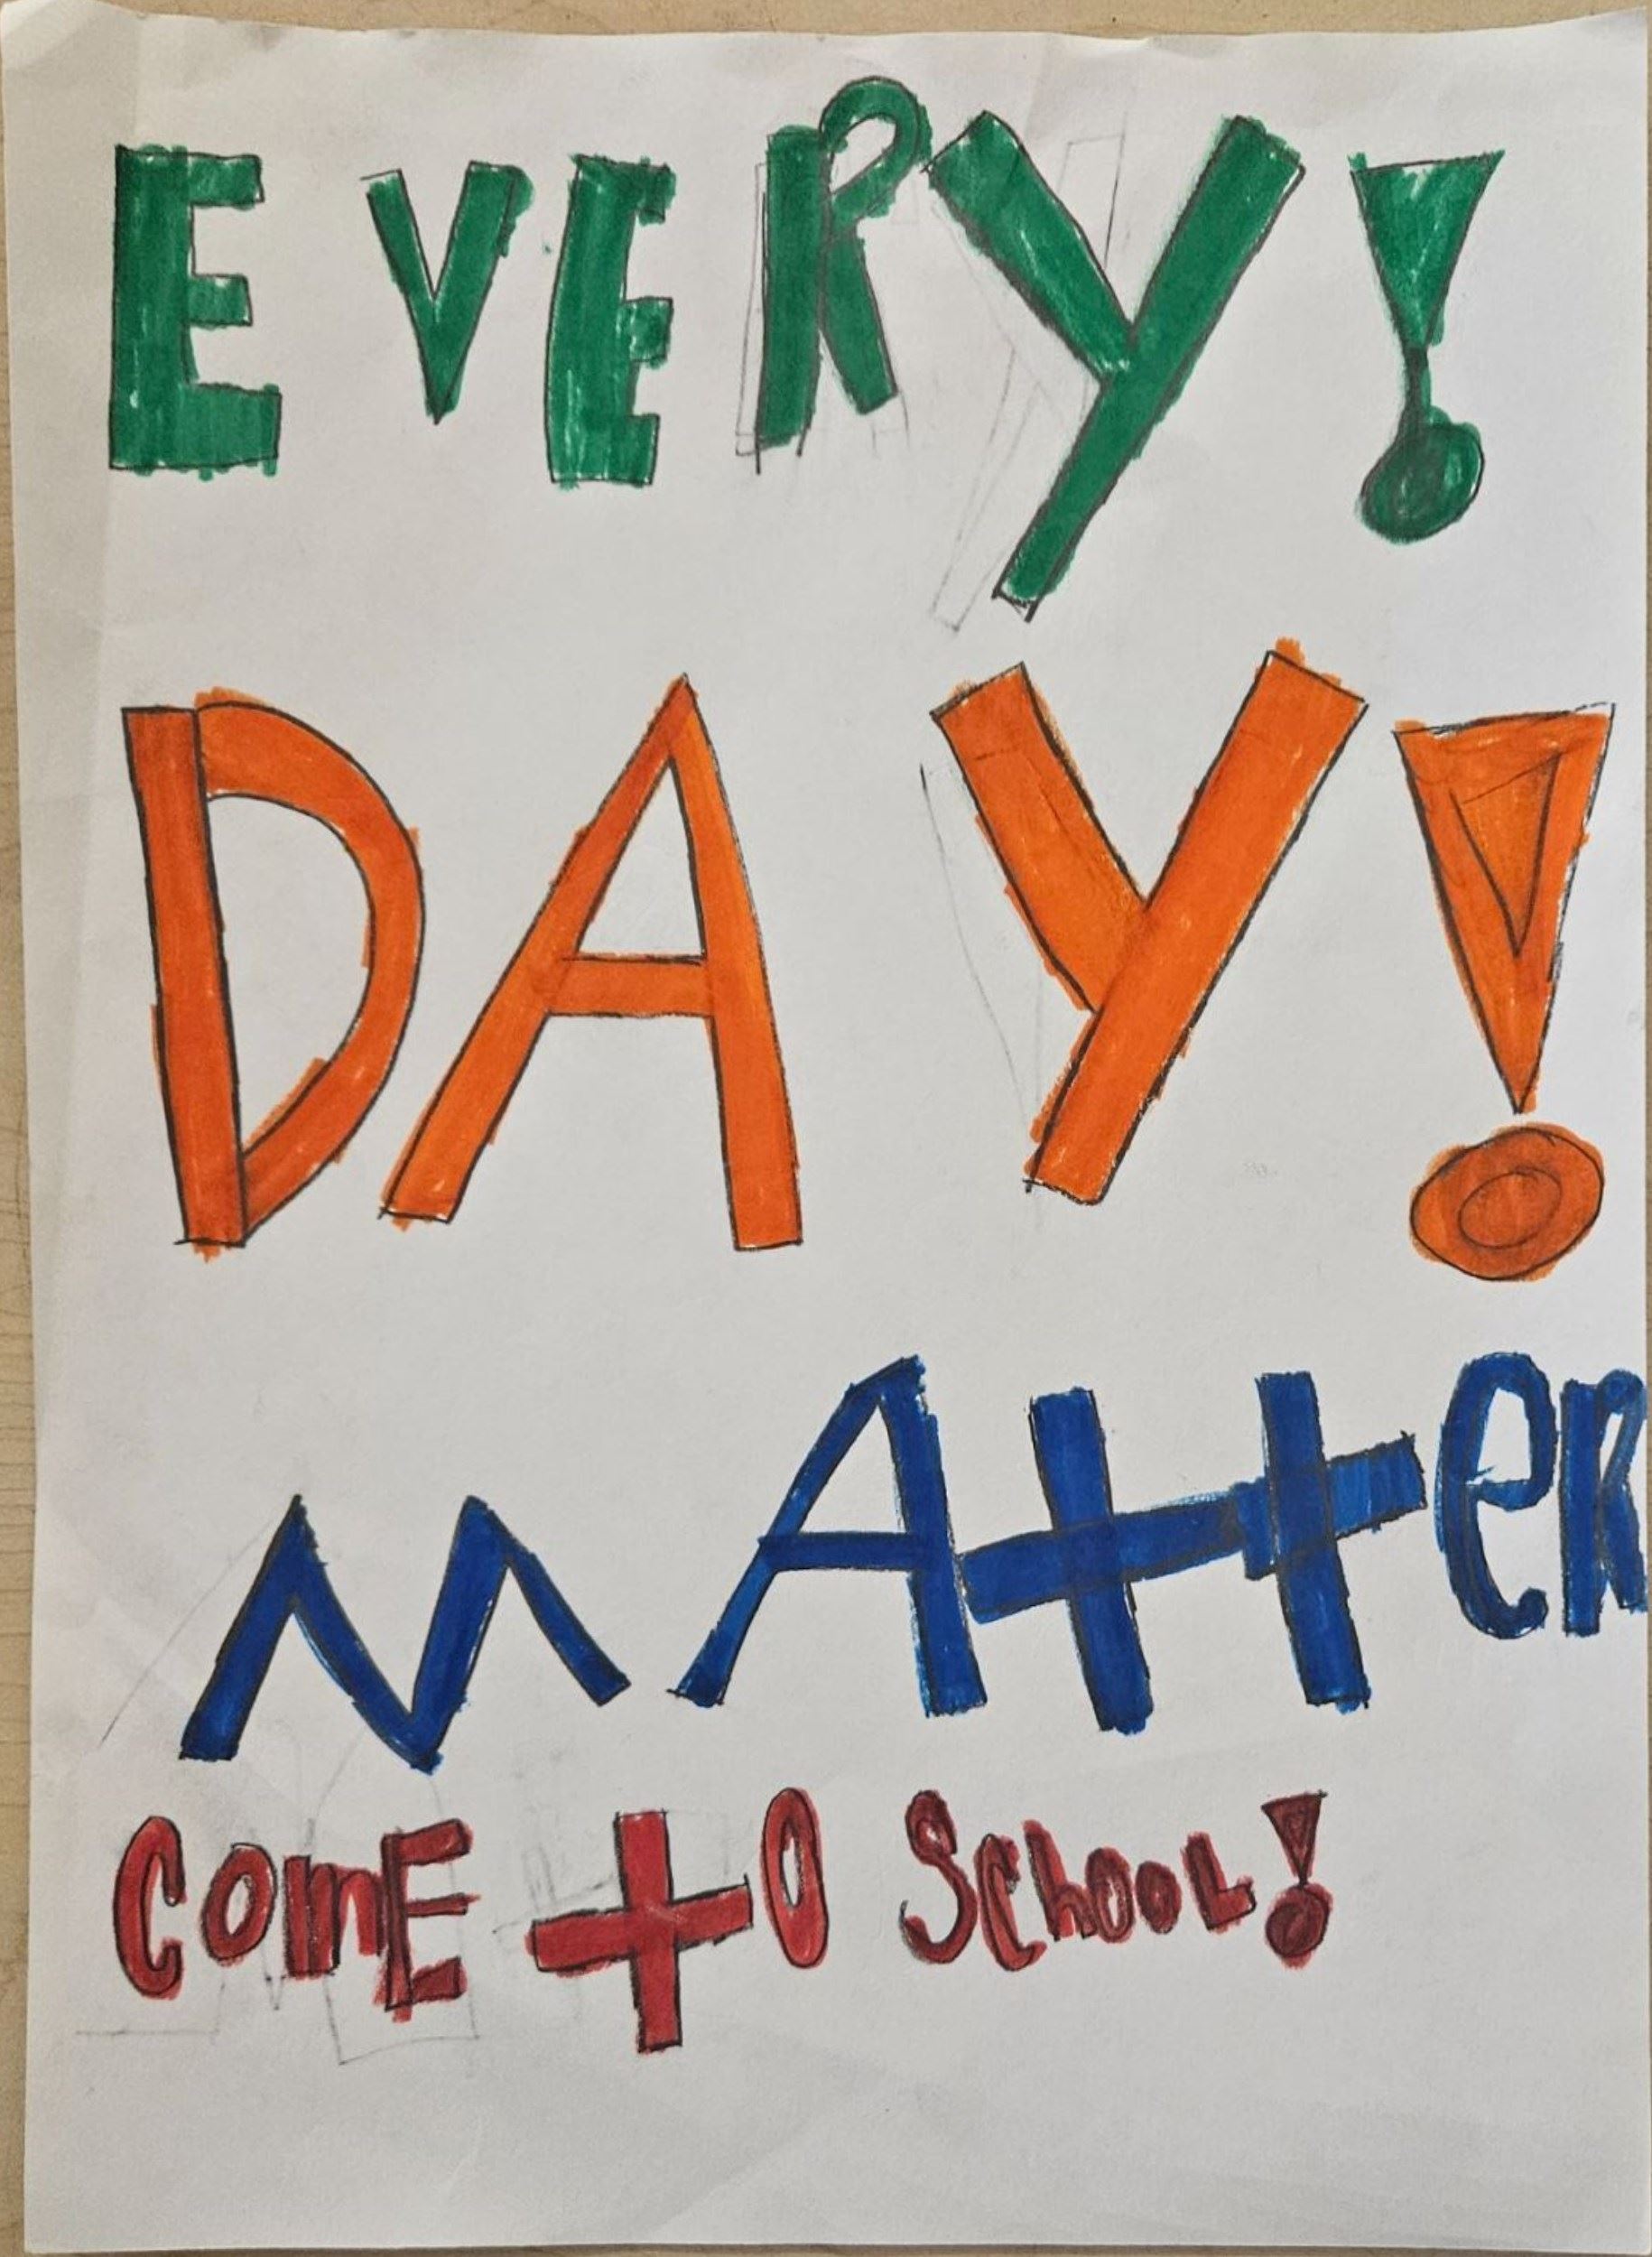 EVERY!
DAY!
MAtter
ComE to SchooL!